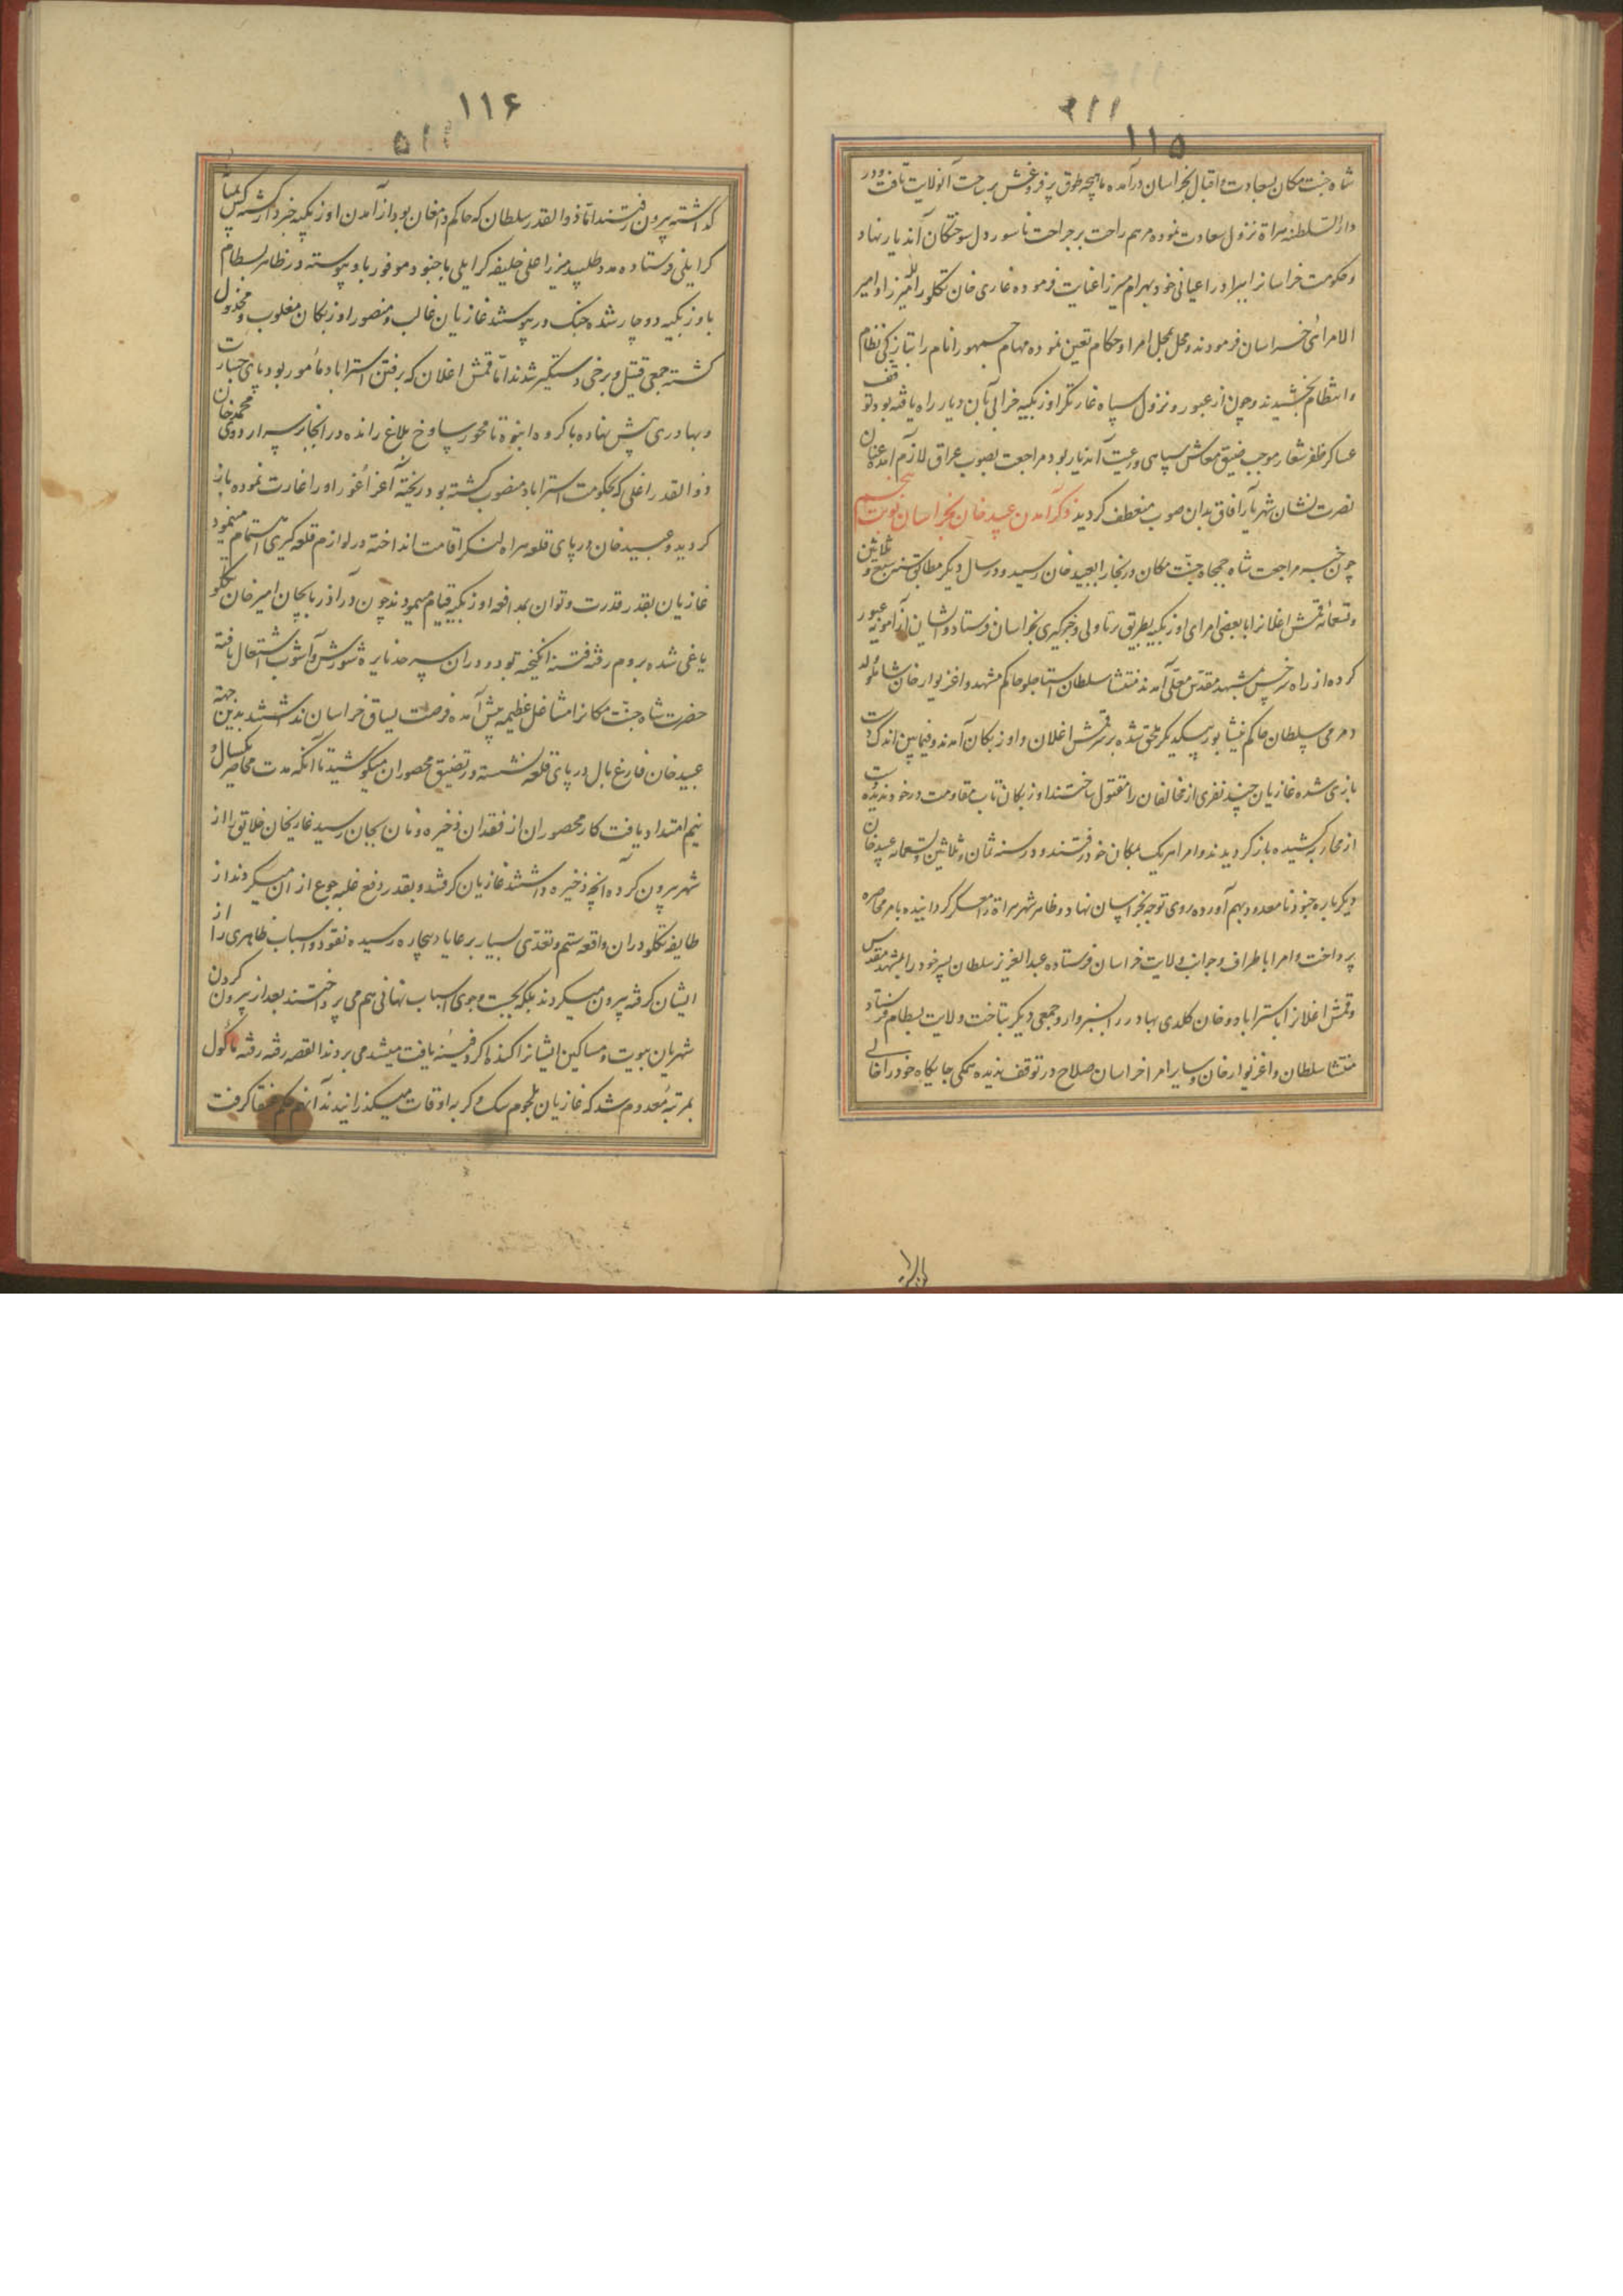 ۱۱۵
شاه جنت مکان بسعادت و اقبال بخراسان درآمده ماهچه طوق پر فروغش بر ساحت آنولایت تافت و در
دار السلطنه هراة نزول سعادت نموده مرهم راحت بر جراحت ناسور دل سوختکان آندیار نهاد
و حکومت خراسانرا ببرادر اعیانی خود بهرام میرزا عنایت فرموده غازی خان تکلو را لله میرزا و امیر
الامرائی خراسان فرمودند و محل بمحل امرا و حکام تعین نموده مهام جمهور انام را بتازکی نظام
و انتظام بخشیدند و چون از عبور و نزول سپاه غارتکر اوزبکیه خرابی بآن دیار راه یافته بود توقف
عساکر ظفر شعار موجب ضیق معاش سپاهی و رعیت آندیار بود مراجعت بصوب عراق لازم آمده عنان
نصرت نشان شهریار آفاق بدان صوب منعطف کردید ذکر آمدن عبید خان بخراسان نوبت پنجم
چون خبر مراجعت شاه جمجاه جنت مکان در بخارا بعبید خان رسید و در سال دیکر مطابق سنه سبع و ثلاثین
و تسعمائه قمش اغلانرا با بعضی امرای اوزبکیه بطریق رتاولی و خبر کیری بخراسان فرستاد و ایشان از آمویه عبور
کرده از راه سرخس بمشهد مقدس معلی آمدند منتشا سلطان استاجلو حاکم مشهد و اغزیوار خان شاملو
و مرمی سلطان حاکم نیشابور بیکدیکر ملحق شده بر سر قمش اغلان و اوزبکان آمدند و فیما بین اندک دست
بازی شده غازیان چند نفری از مخالفان را مقتول ساختند اوزبکان تاب مقاومت در خود ندیده دست
از محاربه کشیده باز کردیدند و امرا هریک بمکان خود رفتند و در سنه ثمان و ثلاثین و تسعمائه عبید خان
دیکر باره جنود نا معدود بهم آورده روی توجه بخراسان نهاد و ظاهر شهر هراة را معسکر کردانیده بامر محاصره
پرداخت و امرا باطراف و جوانب ولایت خراسان فرستاده عبد العزیز سلطان پسر خود را بمشهد مقدس
و قمش اغلانرا باستراباد و خان کلدی بهادر را بسبزوار و جمعی دیکر بتاخت ولایت بسطام فرستاد
منتشا سلطان و اغزیوار خان و سایر امرا خراسان صلاح در توقف ندیده همکی جایکاه خود را خالی
۱۱۶
کذاشته بیرون رفتند اما ذو القدر سلطان که حاکم دامغان بود از آمدن اوزبکیه خبردار کشته کس
کرایلی فرستاده مدد طلبید میرزا علی خلیفه کرایلی با جنود موفور باو پیوسته در ظاهر بسطام
باوزبکیه دوچار شده جنک در پیوستند غازیان غالب و منصور اوزبکان مغلوب و مخذول
کشته جمعی قتیل و برخی دستکیر شدند اما قمش اغلان که برفتن استراباد مأمور بود پای جسارت
و بهادری پیش نهاده با کروه انبوه تا خوار ساوخ بلاغ رانده در آنجا بر سر اردوی محمد خان
ذو القدر اغلی که بحکومت استراباد منصوب کشته بود ریخته آغر اغور او را غارت نموده باز
کردید و عبید خان در پای قلعه هراه لنکر اقامت انداخته در لوازم قلعه کیری اهتمام مینمود
غازیان بقدر قدرت و توان بمدافعه اوزبکیه قیام مینمودند چون در آذربایجان امیر خان تکلو
یاغی شده بروم رفته فتنه انکیخته بود و در آن سرحد نایره شورش و آشوب اشتعال یافته
حضرت شاه جنت مکانرا مشاغل عظیمه پیش آمده فرصت یساق خراسان نداشتند بدین جهة
عبید خان فارغ بال در پای قلعه نشسته در تضییق محصوران میکوشید تا آنکه مدت محاصره یکسال و
نیم امتداد یافت کار محصوران از فقدان ذخیره و نان بجان رسید غازیخان خلایق را از
شهر بیرون کرده آنچه ذخیره داشتند غازیان کرفتند و بقدر دفع غلبه جوع از ان میکردند از
طایفه تکلو دران واقعه ستم و تعدی بسیار بر عایا و بیچاره رسیده نقود و اسباب ظاهری را از
ایشان کرفته بیرون میکردند بلکه بجست و جوی اسباب نهانی هم می پرداختند بعد از بیرون کردن
شهریان بیوت و مساکین ایشانرا کنده اکر دفینه یافت میشد می بردند القصه رفته رفته مأکول
بمرتبه معدوم شد که غازیان بلحوم سک و کربه اوقات میکذرانیدند آنهم حکم عنقا کرفت